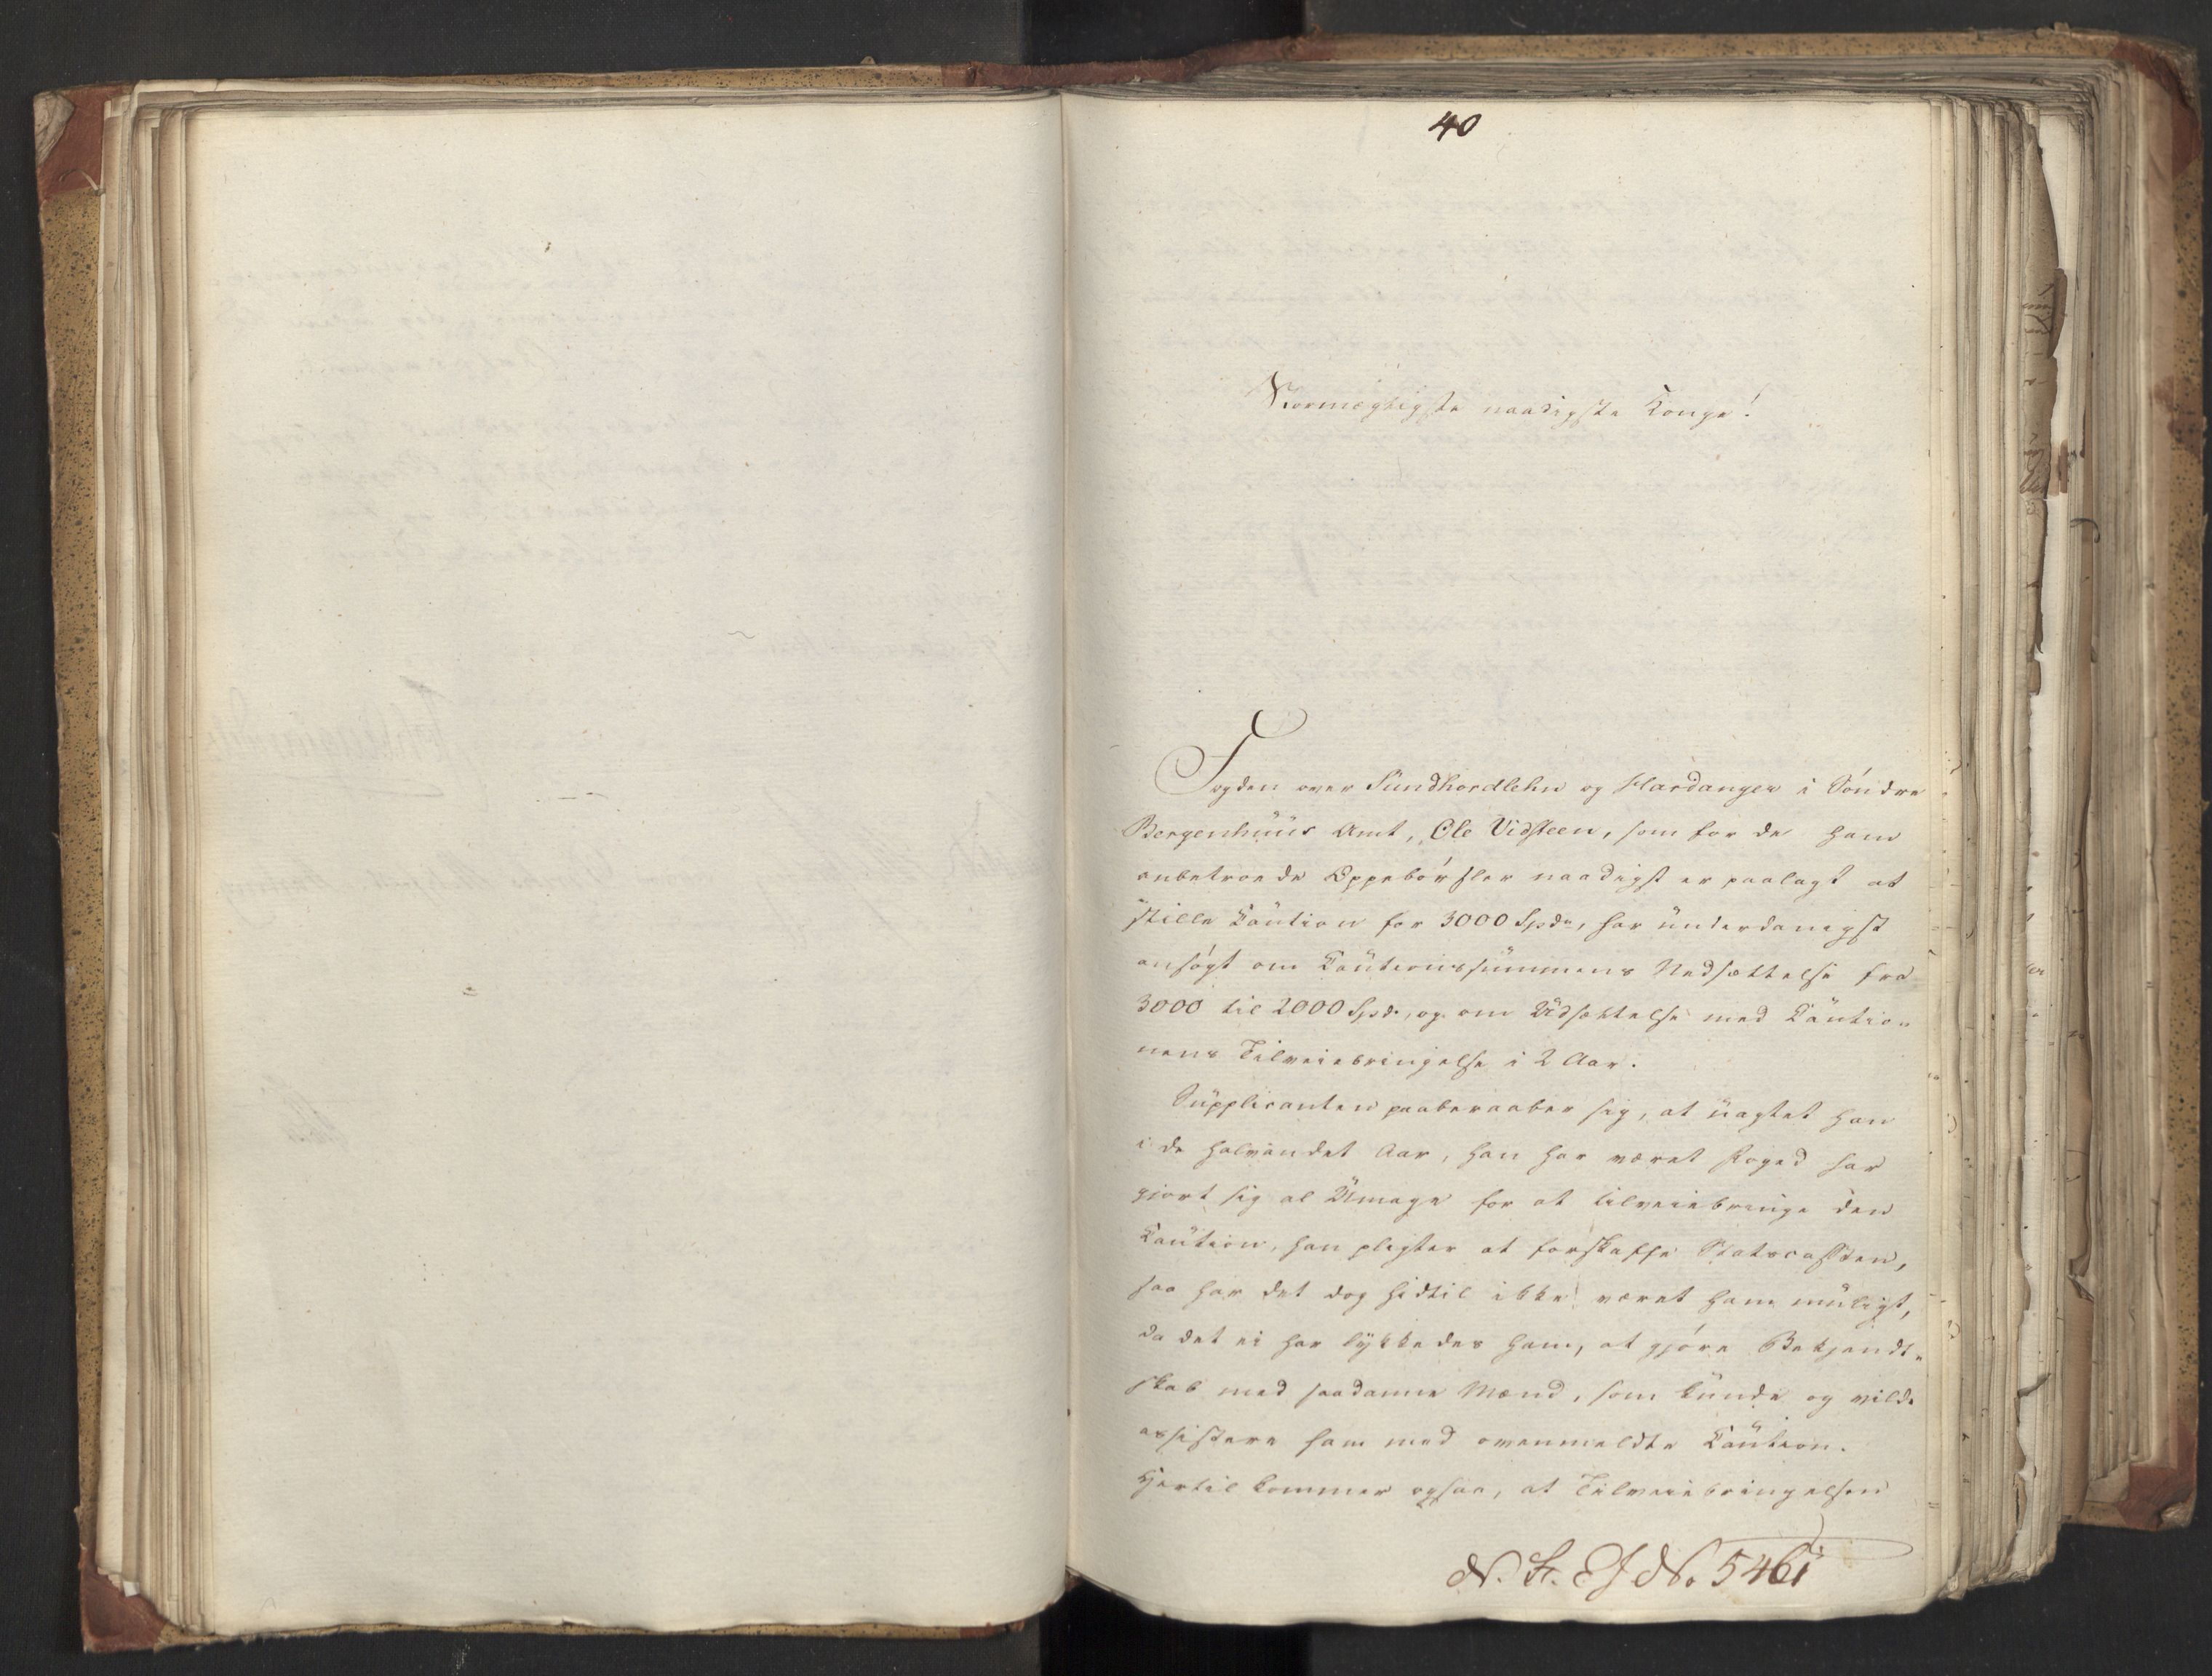 40
Stormægtigste naadigste Konge!
Fogden over Sundhordlehn og Hardanger i Søndre
Bergenhuus Amt, Ole Vidsteen, som for de ham
anbetroede Oppebørsler naadigst er paalagt at
stille Caution for 3000 Spdr, har underdanigst
ansøgt om Cautionssummens Nedsættelse fra
3000 til 2000 Spd., og om Udsættelse med Cautio-
nens Tilveiebringelse i 2 Aar.
Supplicanten paaberaaber sig, at uagtet han
i de halvandet Aar, han har været Foged har
gjort sig al Umage for at tilveiebringe den
Caution, han pligter at forskaffe Statscassen,
saa har det dog hidtil ikke været ham muligt,
da det ei har lykkedes ham, at gjøre Bekjendt-
skab med saadanne Mænd, som kunde og vilde
assistere ham med ovenmeldte Caution.
Hertil kommer ogsaa, at Tilveiebringelsen
No 5461